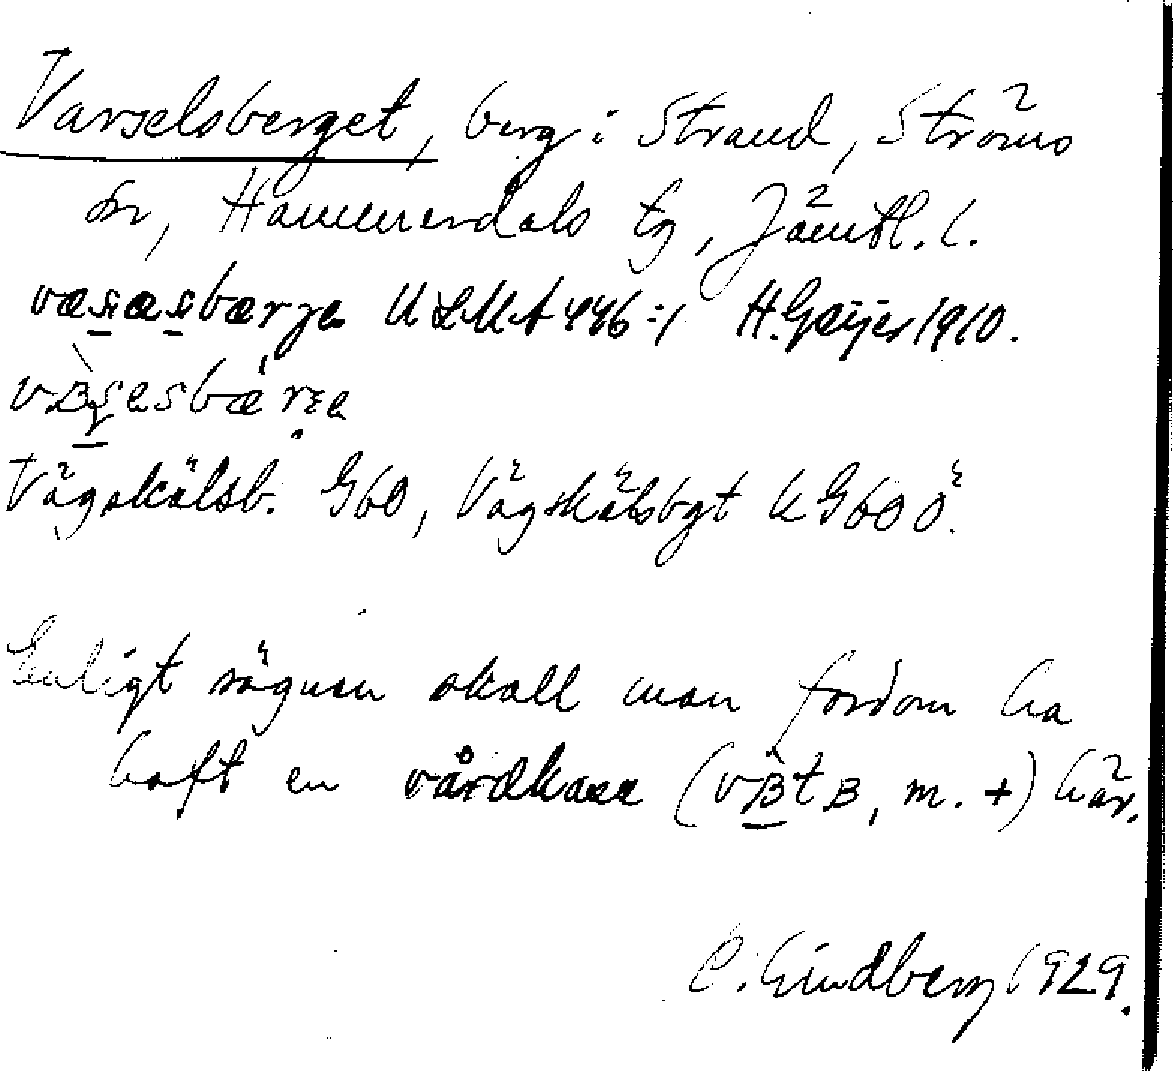 Varselsberget, berg i Strand, Ströms
sn, Hammerdals tg, Jämtl. l.
væsæsbærje ULMA 446:1 H. Geijer 1910.
Vägskälsb. G60, Vägskälsbgt KG60Ö.
Enligt sägnen skall man fordom ha
haft en vårdkase (vʙtʙ, m. +) här.
C. Lindberg 1929.